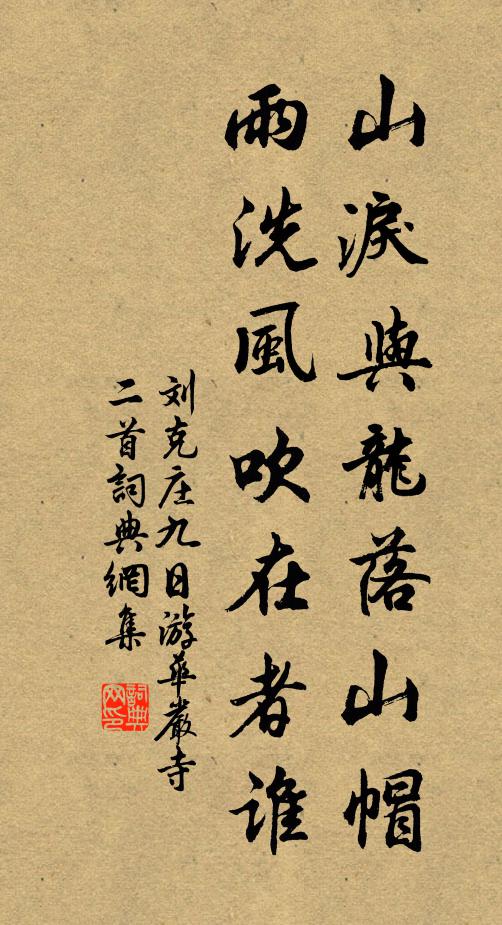 山淚與龍落山帽
雨洗風吹在者誰
刘克庄九日游華嚴寺
二首詞典網集
詞典网印